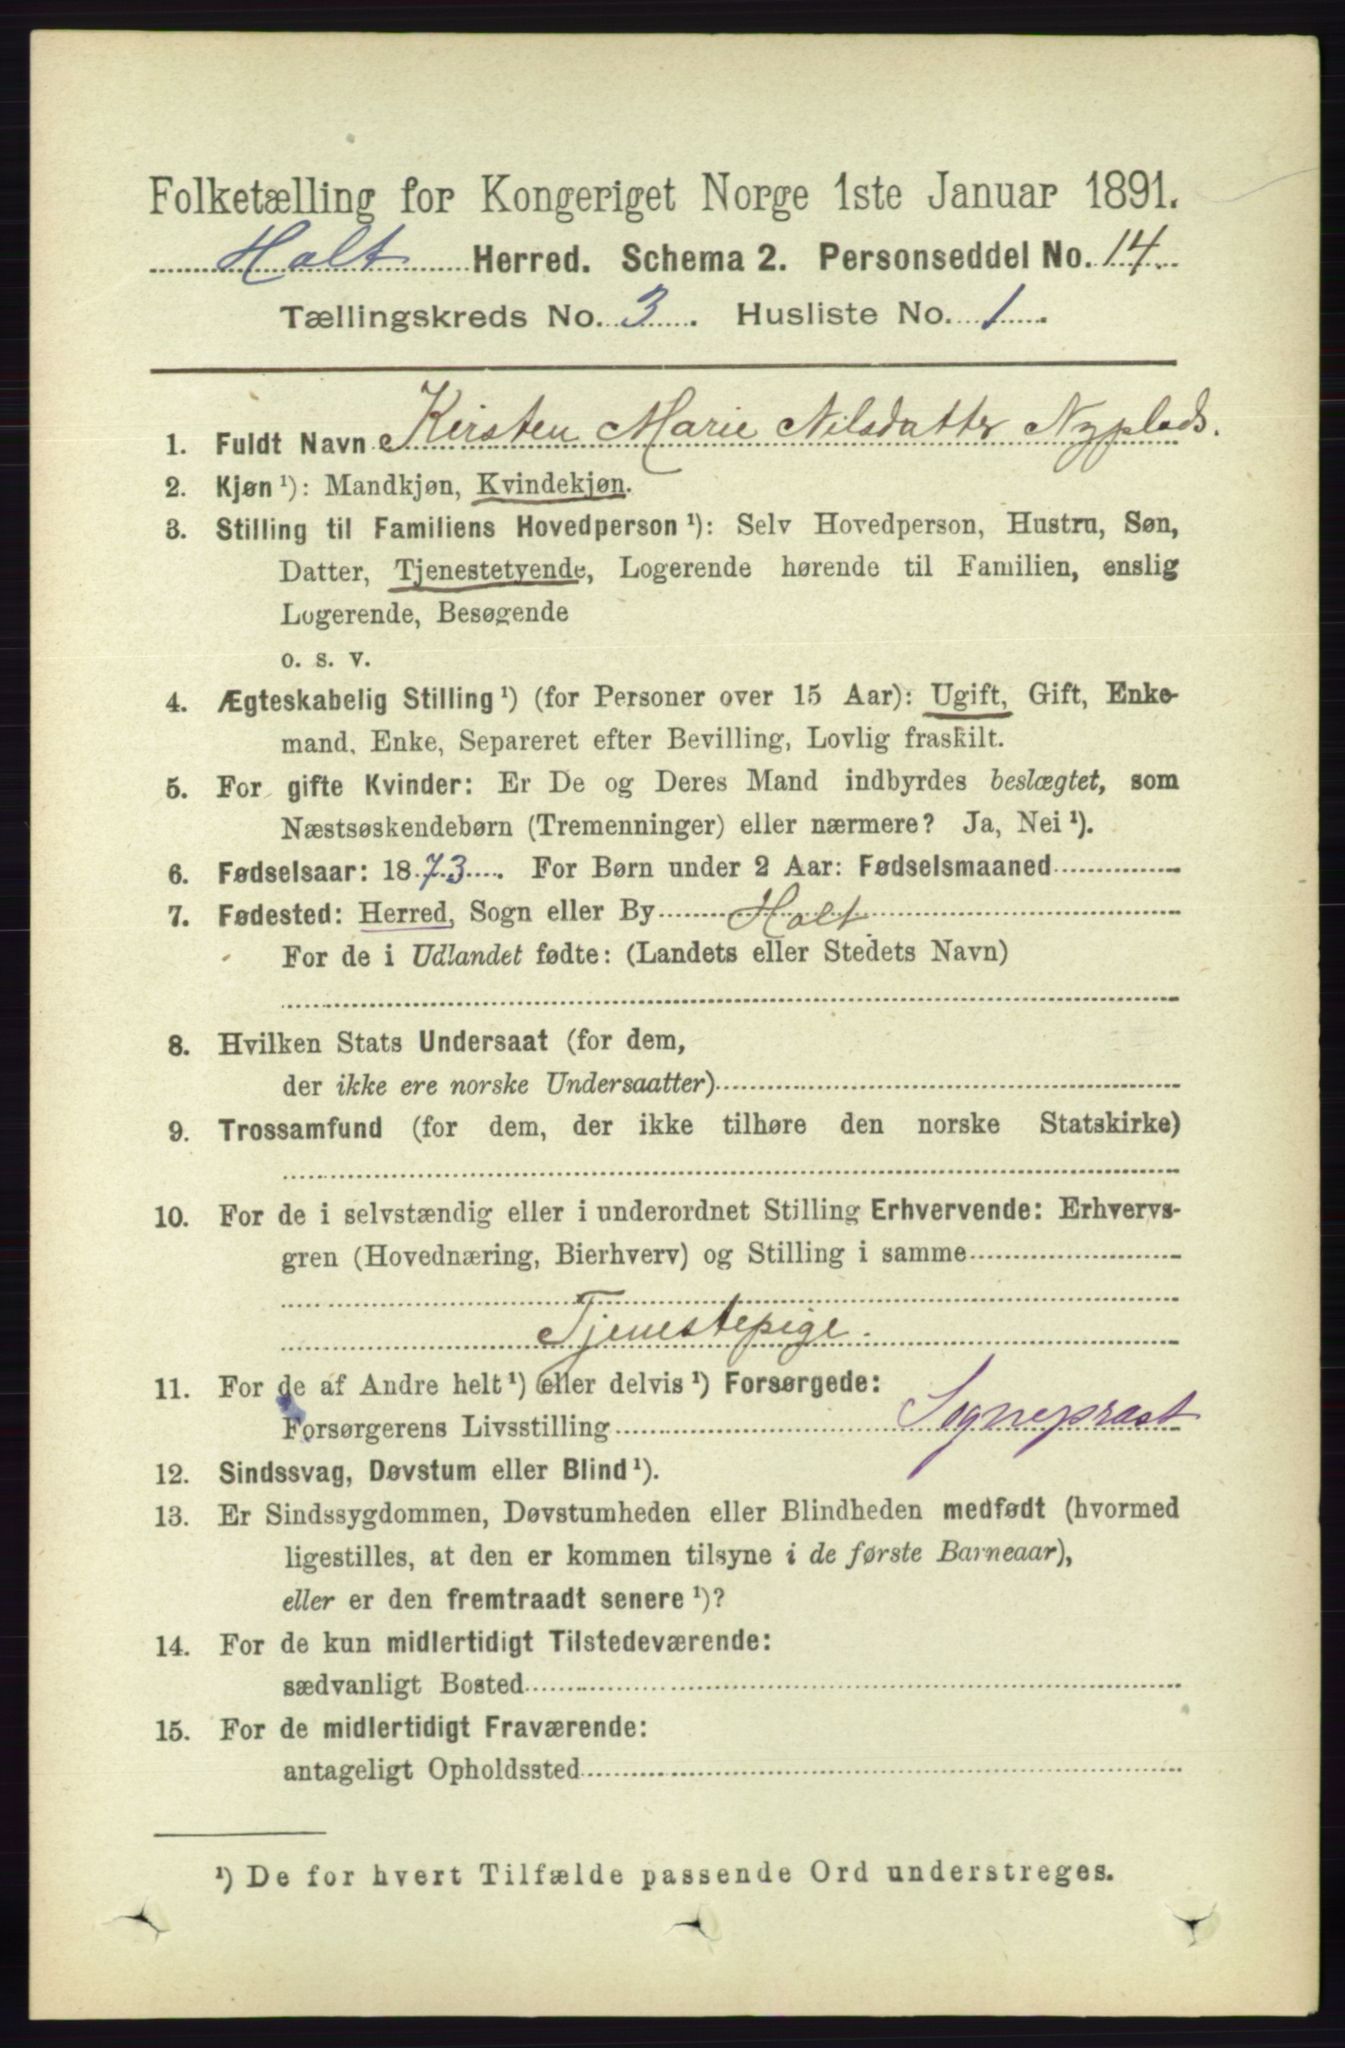 Folketælling for Kongeriget Norge 1ste Januar 1891.
Holt Herred. Schema 2. Personseddel No. 14.
Tællingskreds No. 3. Husliste No. 1.
1. Fuldt Navn Kirsten Marie Nilsdatter Nyplads.
2. Kjøn ¹): Mandkjøn, Kvindekjøn.
3. Stilling til Familiens Hovedperson ¹): Selv Hovedperson, Hustru, Søn,
Datter, Tjenestetyende, Logerende hørende til Familien, enslig
Logerende, Besøgende
o. s. v.
4. Ægteskabelig Stilling ¹) (for Personer over 15 Aar): Ugift, Gift, Enke-
mand, Enke, Separeret efter Bevilling, Lovlig fraskilt.
5. For gifte Kvinder: Er De og Deres Mand indbyrdes beslægtet, som
Næstsøskendebørn (Tremenninger) eller nærmere? Ja, Nei ¹).
6. Fødselsaar: 1873. For Børn under 2 Aar: Fødselsmaaned
7. Fødested: Herred, Sogn eller By Holt
For de i Udlandet fødte: (Landets eller Stedets Navn)
8. Hvilken Stats Undersaat (for dem,
der ikke ere norske Undersaatter)
9. Trossamfund (for dem, der ikke tilhøre den norske Statskirke)
10. For de i selvstændig eller i underordnet Stilling Erhvervende: Erhvervs-
gren (Hovednæring, Bierhverv) og Stilling i samme
Tjenestepige.
11. For de af Andre helt ¹) eller delvis ¹) Forsørgede:
Forsørgerens Livsstilling Sogneprest
12. Sindssvag, Døvstum eller Blind ¹).
13. Er Sindssygdommen, Døvstumheden eller Blindheden medfødt (hvormed
ligestilles, at den er kommen tilsyne i de første Barneaar),
eller er den fremtraadt senere ¹)?
14. For de kun midlertidigt Tilstedeværende:
sædvanligt Bosted
15. For de midlertidigt Fraværende:
antageligt Opholdssted
¹) De for hvert Tilfælde passende Ord understreges.